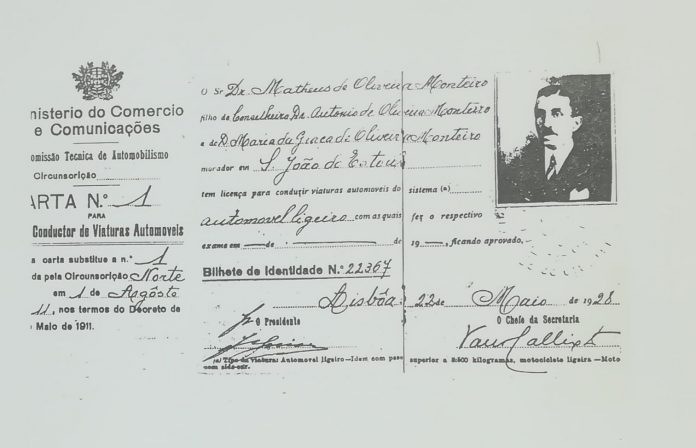 nisterio do Comercio
e Comunicações
omissão Tecnica de Automobilismo
Circunscrição
ARTA N.º 1
PARA
Conductor de Viaturas Automoveis
a carta substitue a n.º 1
da pela Circunscrição Norte
em 1 de Agôsto
11, nos termos do Decreto de
Maio de 1911.
O Sr Dr. Matheus de Oliveira Monteiro
filho de Conselheiro, Dr. Antonio de Oliveira Monteiro
e de D. Maria da Graça de Oliveira Monteiro
morador em S. João do Estoril
tem licença para conduzir viaturas automoveis do sistema (a)
automovel ligeiro com as quais fez o respectivo
exame em — de — de 19 —, ficando aprovado.
Bilhete de Identidade N.º 22367
Lisbôa 22 de Maio de 1928
O Presidente
O Chefe da Secretaria
(a) Tipo da viatura: Automovel ligeiro—Idem com peso superior a 3:500 kilogramas, motociclete ligeira—Moto
com side-car.